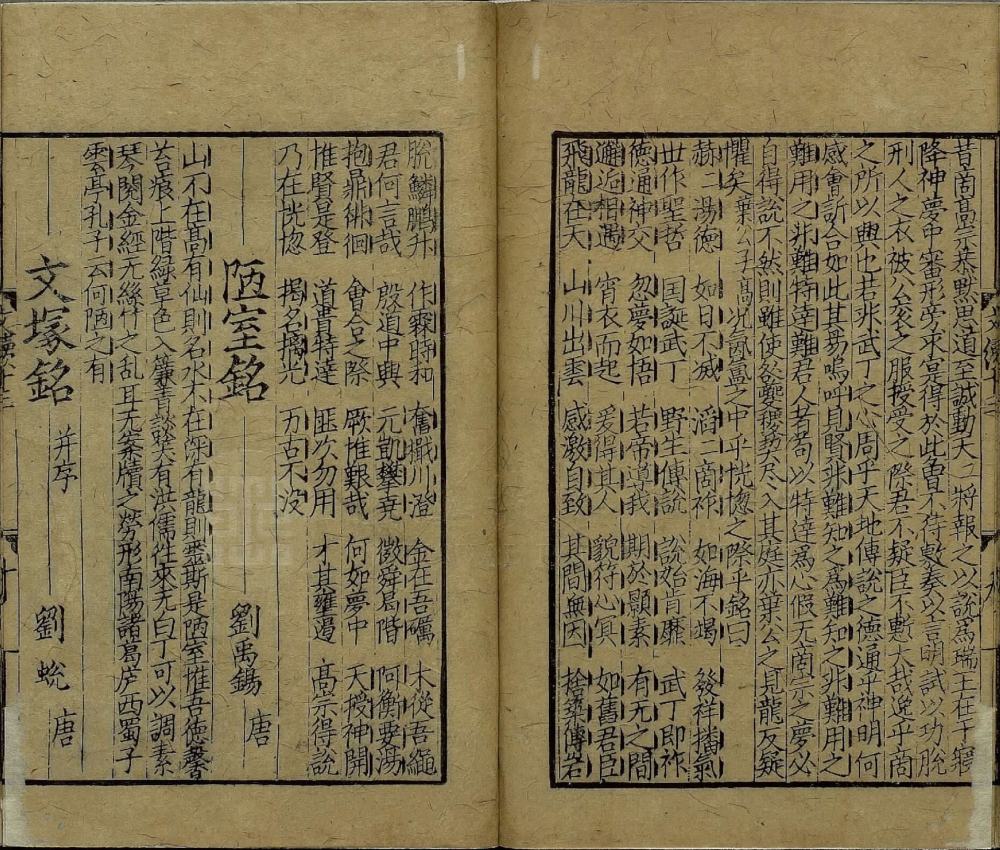 昔商高宗恭默思道至誠動天天將報之以說爲瑞王在于寢
降神夢中審形旁求冥得於此曾不待敷奏以言明試以功脫
刑人之衣被公衮之服授受之際君不疑臣不慙大哉逸乎商
之所以興也若非武丁之心周乎天地傳說之德通乎神明何
感會訢合如此其易嗚呼見賢非難知之爲難知之非難用之
難用之非難特達難君人者苟以特達爲心假无商宗之夢必
自得說不然則雖使咎夔稷契尽入其庭亦葉公之見龍反疑
懼矣葉公子髙况冥之中乎恍惚之際乎銘曰
赫二湯德 如日不滅 滔二商祚 如海不竭 發祥播氣
世作聖哲 囯誕武丁 野生傳說 說始肯靡 武丁即祚
德通神交 忽夢如悟 若帝導我 期於顥素 有无之間
邂逅相遇 宵衣而起 爰得其人 貌符心冥 如舊君臣
飛龍在天 山川出雲 感激自致 其間無因 捨築傳岩
脫鱗鵬升 作霖時和 奮檝川澄 金在吾礪 木從吾繩
君何言哉 殷道中興 元凱攀堯 徵舜爲階 阿衡要湯
抱鼎徘徊 會合之際 厥惟艱哉 何如夢中 天授神開
惟賢是登 道書特達 匪次勿用 才其壅遏 髙宗得說
乃在恍惚 揭名摛光 万古不沒
陋室銘 劉禹錫 唐
山不在高有仙則名水不在深有龍則灵斯是陋室惟吾德馨
苔痕上階綠草色入簾青談咲有洪儒往來无白丁可以調素
琴閱金經无絲竹之乱耳无案牘之勞形南陽諸葛庐西蜀子
雲亭孔子云何陋之有
文塚銘 并序 劉蛻 唐